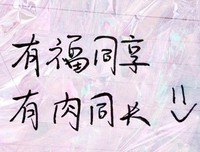 有福同享
有肉同长